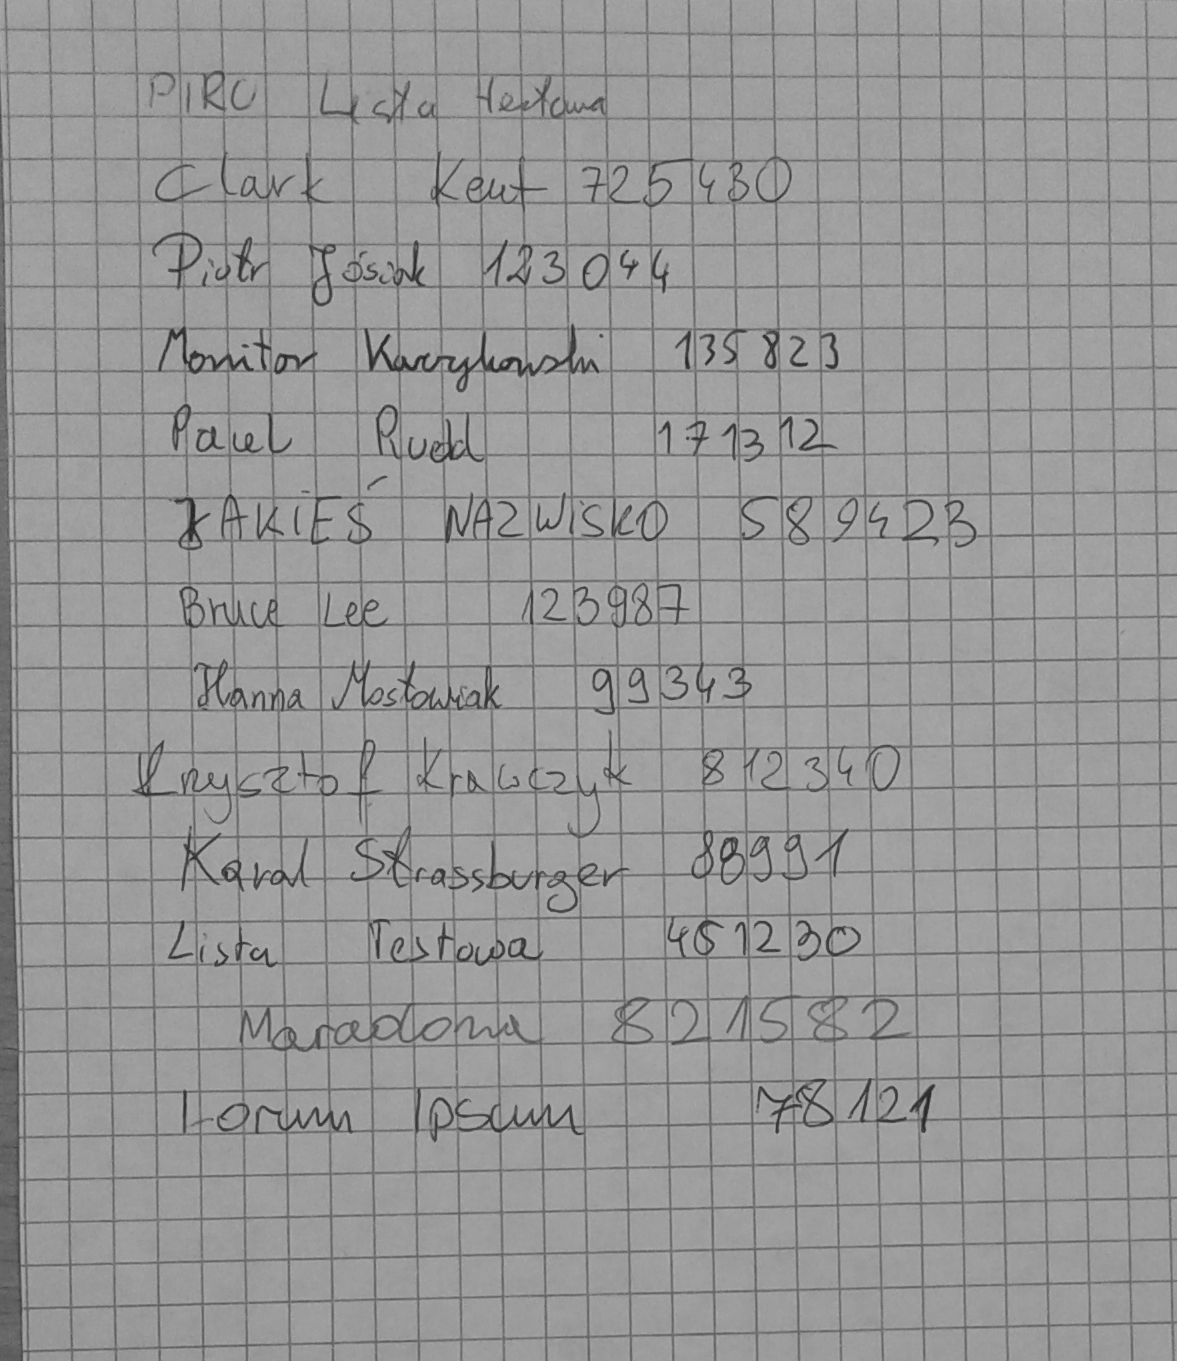 PIRO Lista testowa
Clark Kent 725430
Piotr Jósiak 123044
Monitor Kaczykowski 135823
Paul Rudd 171312
JAKIEŚ NAZWISKO 589423
Bruce Lee 123987
Hanna Mostowiak 99343
Krzysztof Krawczyk 812340
Karol Strassburger 88991
Lista Testowa 451230
Maradona 821582
Lorum Ipsum 78121